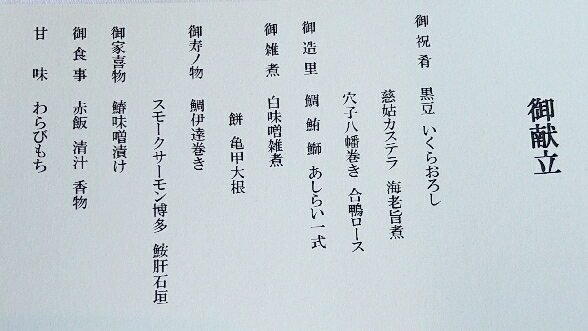 御献立
御祝肴 黒豆 いくらおろし
慈姑カステラ 海老旨煮
穴子八幡巻き 合鴨ロース
御造里 鯛 鮪 鰤 あしらい一式
御雑煮 白味噌雑煮
餅 亀甲大根
御寿ノ物 鯛伊達巻き
スモークサーモン博多 鮟肝石垣
御家喜物 鰆味噌漬け
御食事 赤飯 清汁 香物
甘味 わらびもち